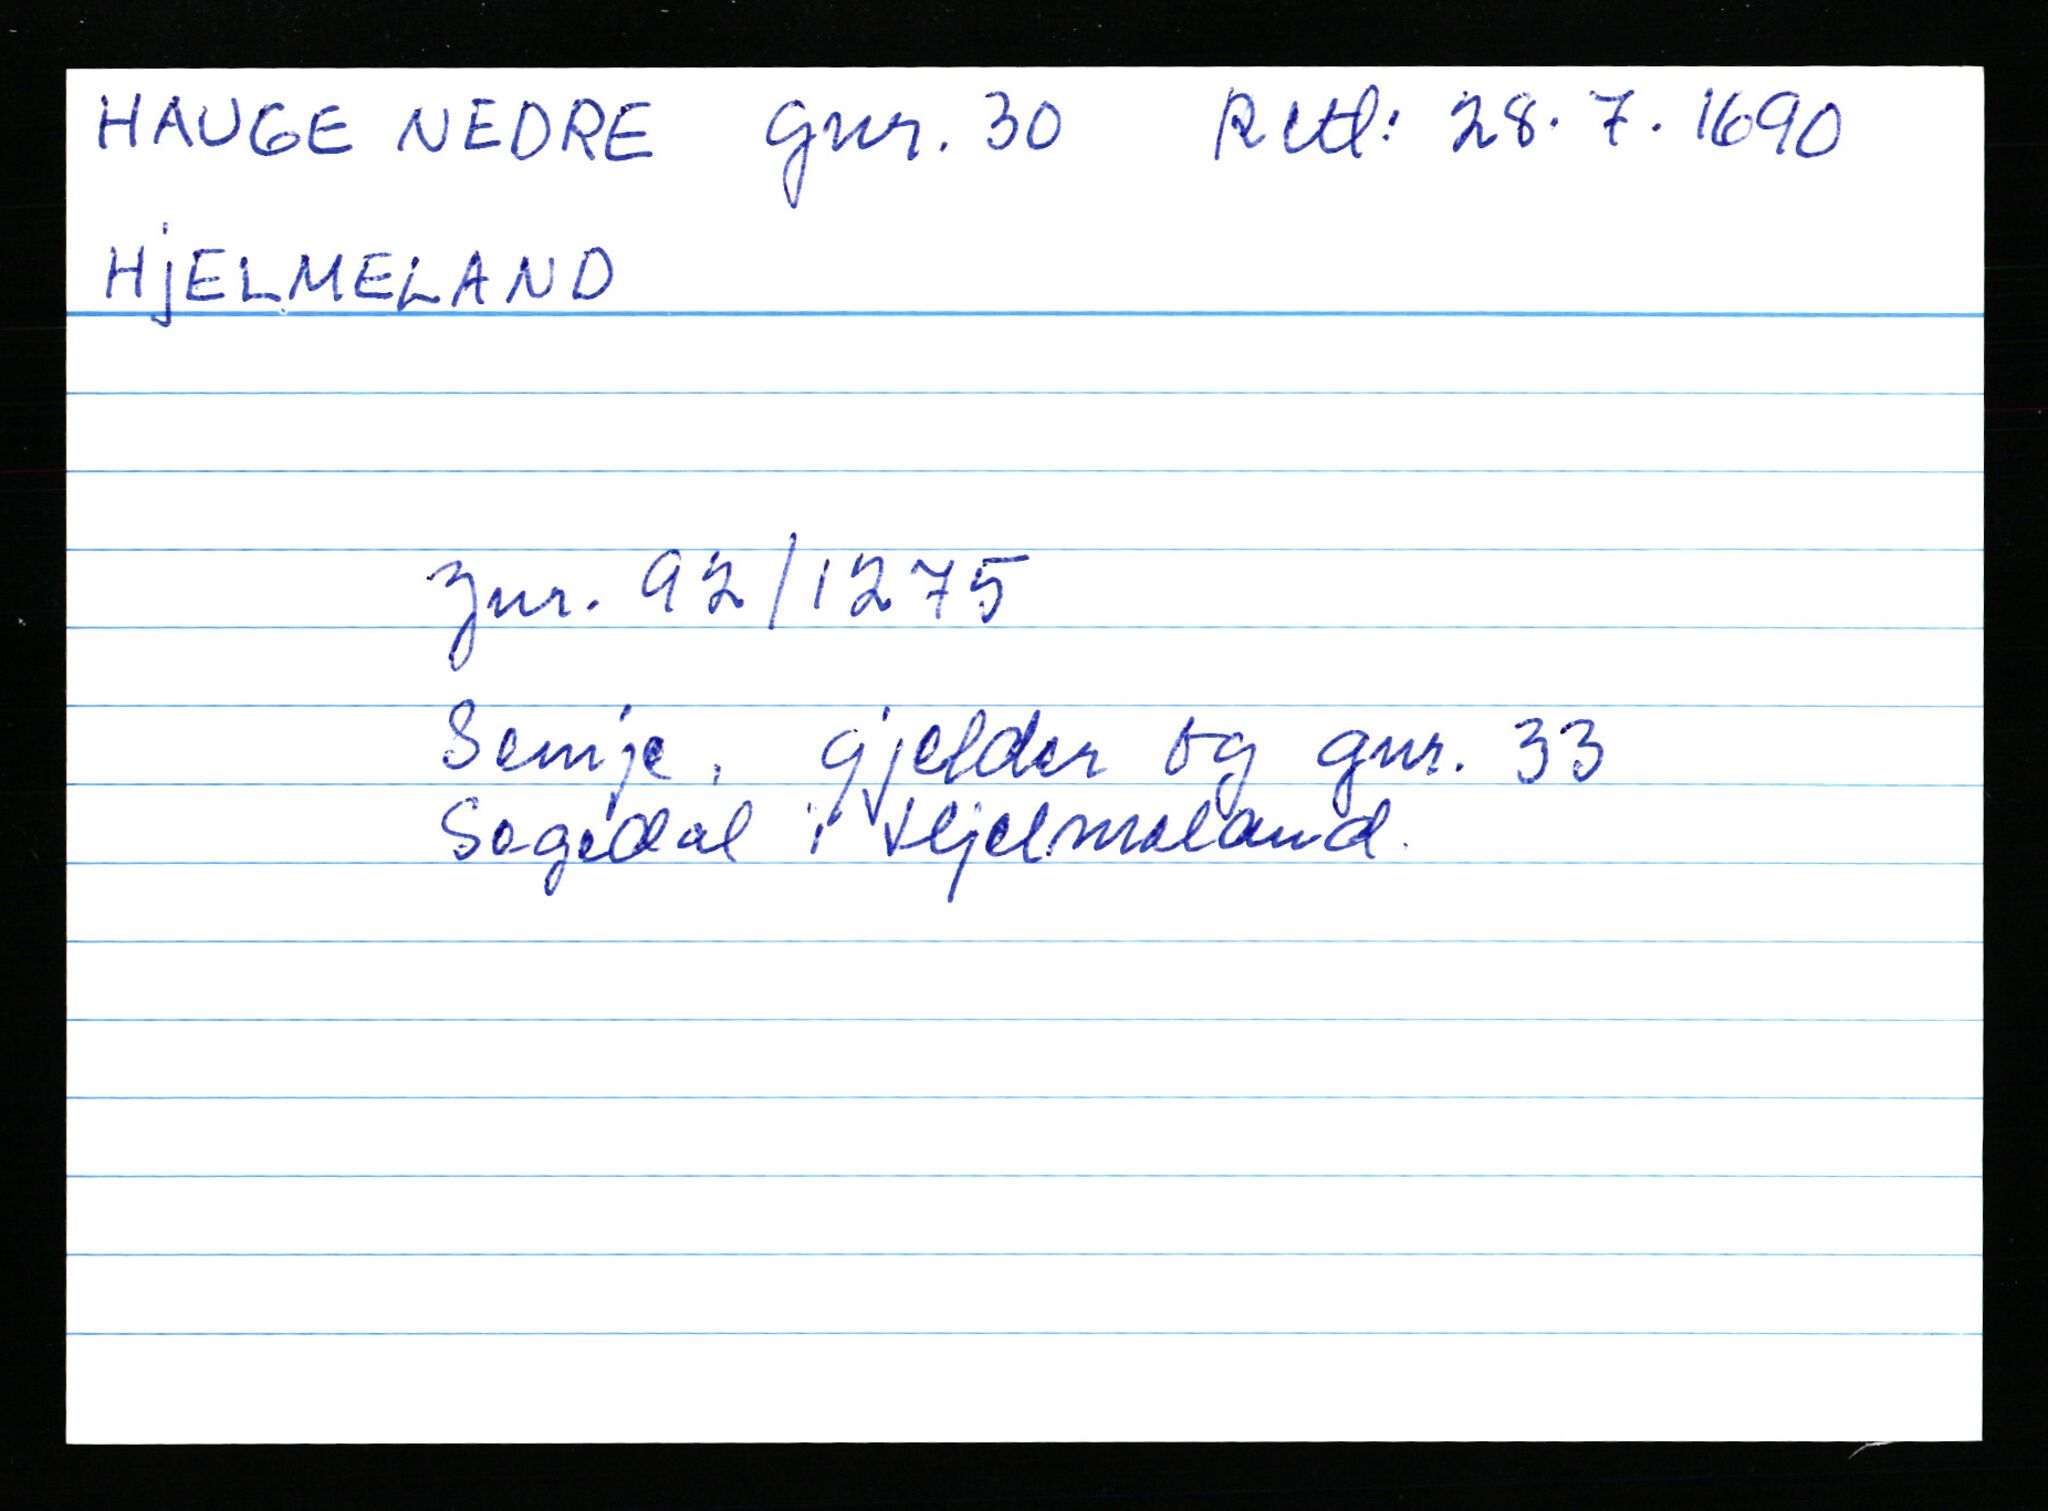 HAUGE NEDRE gnr. 30 Rettl: 28. 7. 1690
HjELMELAND
Jnr. 92/1275
Semje, gjelder og gnr. 33
Søgedal i Hjelmeland.